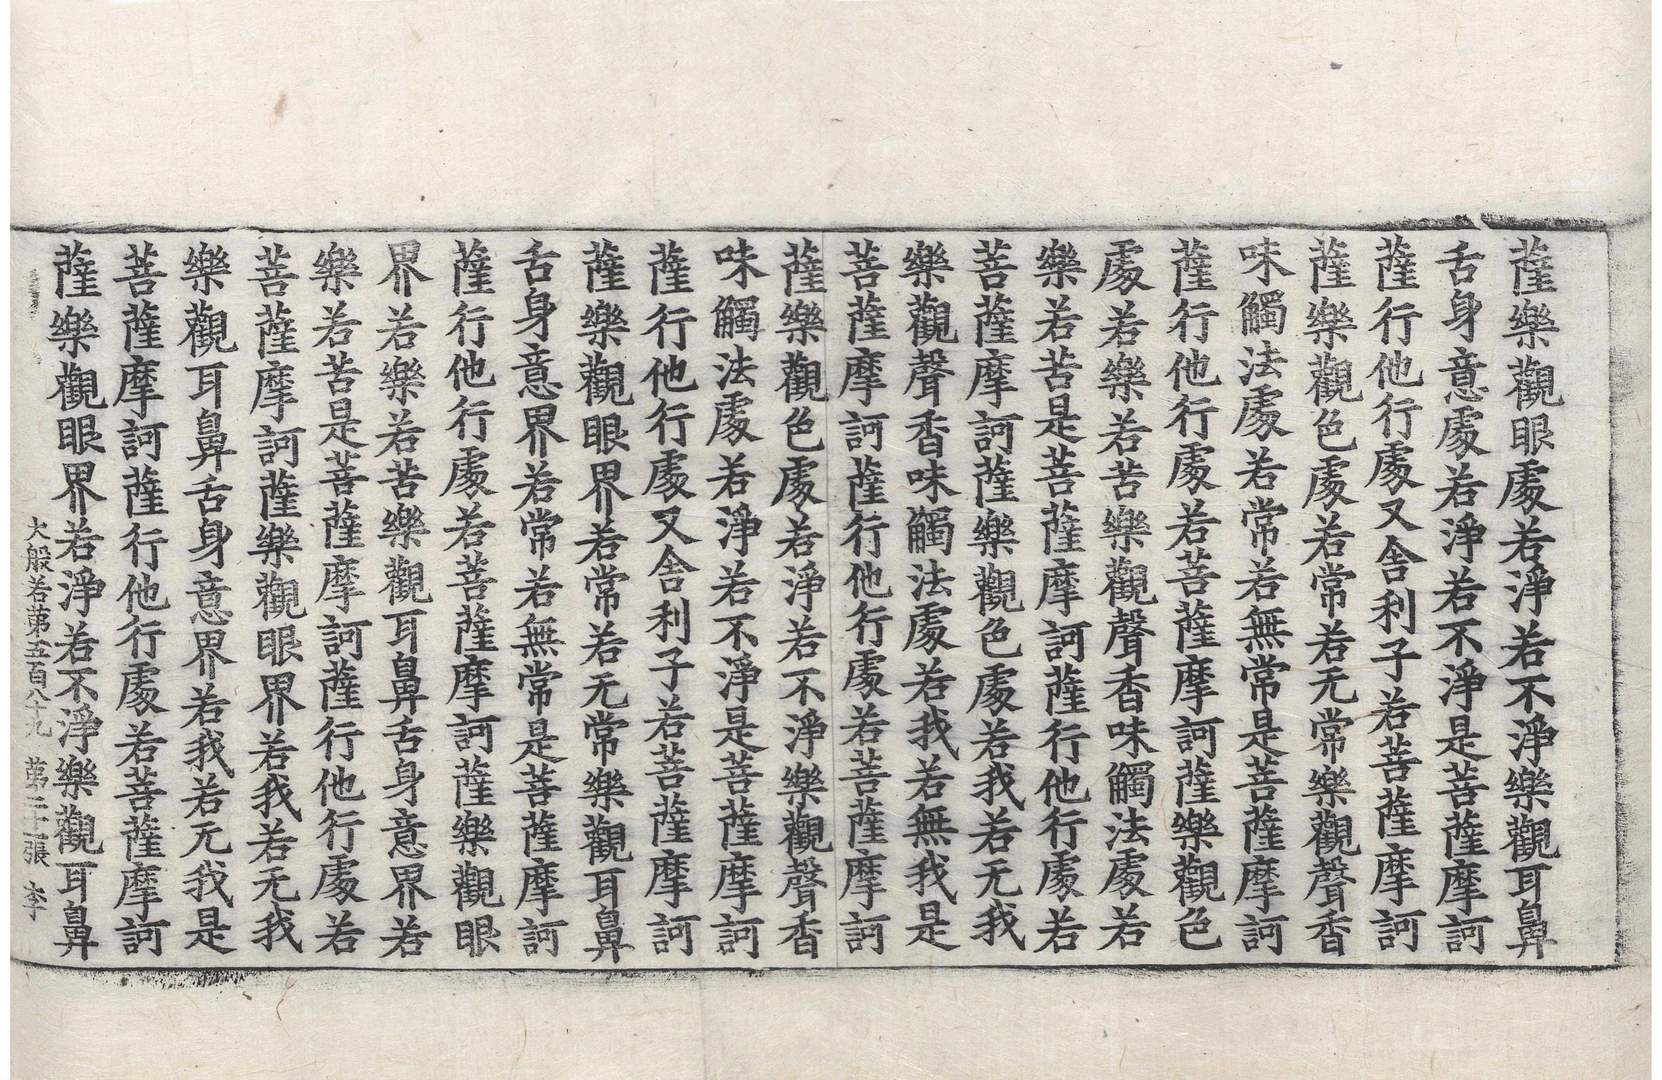 薩樂觀眼處若淨若不淨樂觀耳鼻
舌身意處若淨若不淨是菩薩摩訶
薩行他行處又舍利子若菩薩摩訶
薩樂觀色處若常若无常樂觀聲香
味觸法處若常若無常是菩薩摩訶
薩行他行處若菩薩摩訶薩樂觀色
處若樂若苦樂觀聲香味觸法處若
樂若苦是菩薩摩訶薩行他行處若
菩薩摩訶薩樂觀色處若我若无我
樂觀聲香味觸法處若我若無我是
菩薩摩訶薩行他行處若菩薩摩訶
薩樂觀色處若淨若不淨樂觀聲香
味觸法處若淨若不淨是菩薩摩訶
薩行他行處又舍利子若菩薩摩訶
薩樂觀眼界若常若无常樂觀耳鼻
舌身意界若常若無常是菩薩摩訶
薩行他行處若菩薩摩訶薩樂觀眼
界若樂若苦樂觀耳鼻舌身意界若
樂若苦是菩薩摩訶薩行他行處若
菩薩摩訶薩樂觀眼界若我若无我
樂觀耳鼻舌身意界若我若无我是
菩薩摩訶薩行他行處若菩薩摩訶
薩樂觀眼界若淨若不淨樂觀耳鼻
大般若第五百八十九 第二十張 李